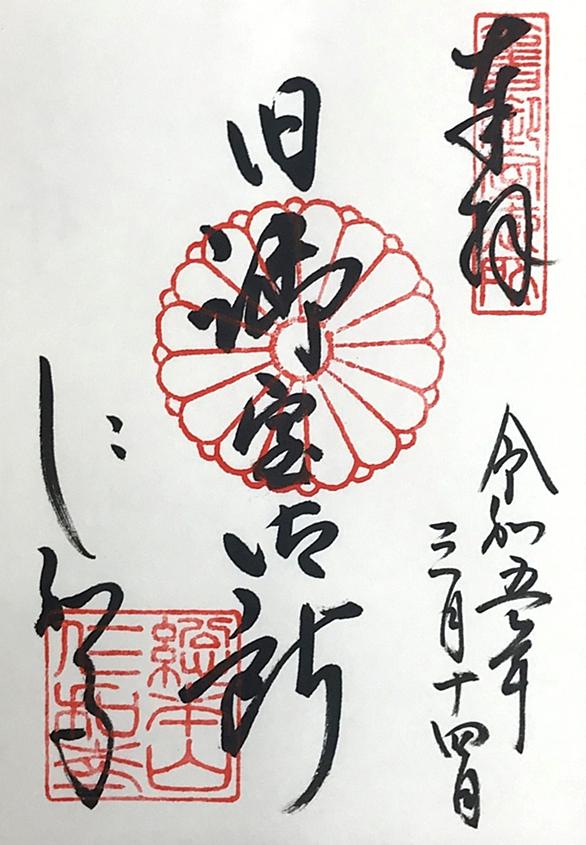 奉拝
令和五年
三月十四日
旧御室御所
にわ寺
総本山
仁和寺